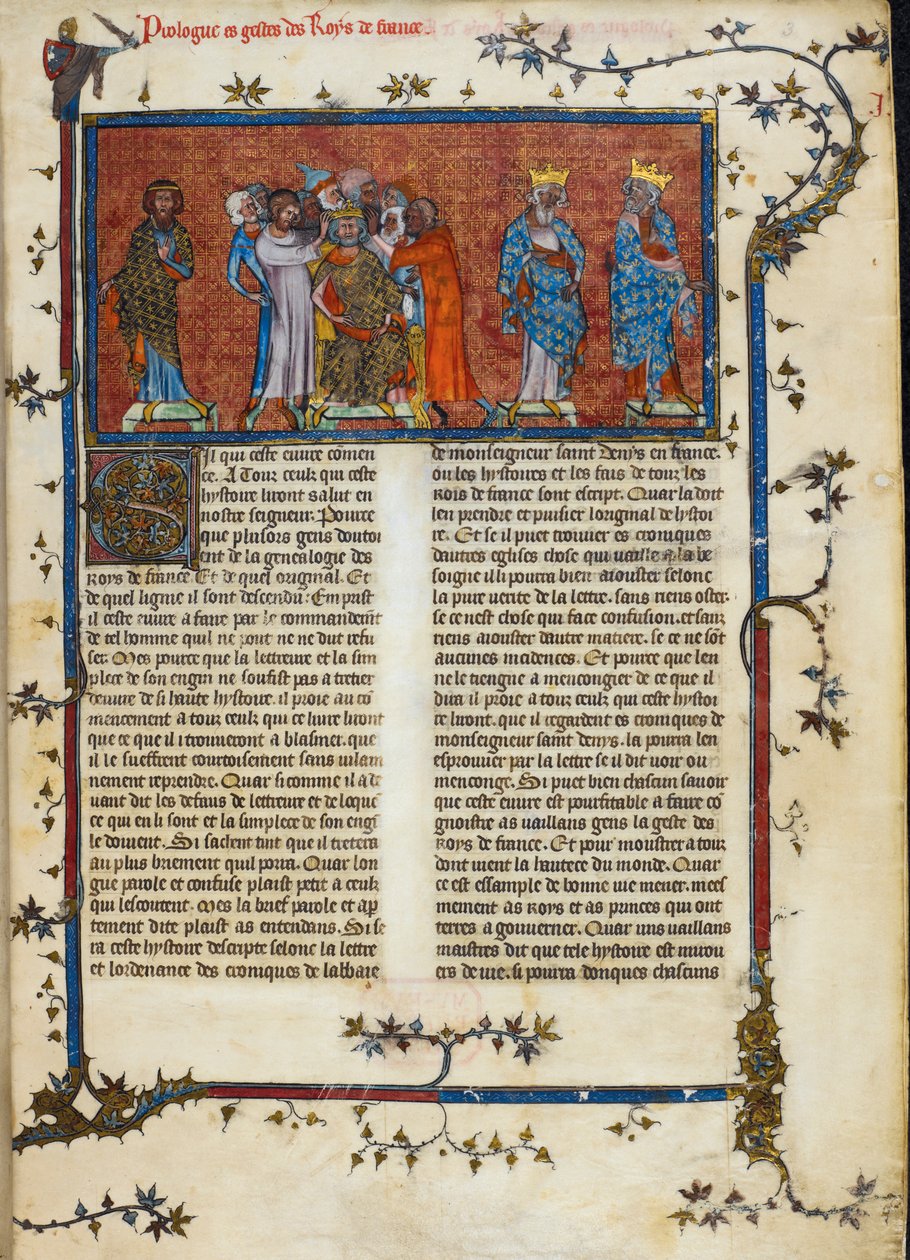 Prologue es gestes des Roys de france
3
I.
Cil qui ceste euure cōmen
ce. A Touz ceulz qui ceste
hystoire liront salut en
nostre seigneur. Pource
que plusors gens doutoi
ent de la genealogie des
Roys de france. Et de quel original. Et
de quel lignie il sont descendu: Emprist
il ceste euure a faire par le commandemēt
de tel homme quil ne pout ne ne dut refu
ser. Mes pource que la lettreure et la sim
plece de son engin ne soufist pas a tretier
deuure de si haute hystoire. il proie au cō
mencement a touz ceulz qui ce liure liront
que ce que il i trouueront a blasmer. que
il le sueffrent courtoisement sans vilain
nement reprendre. Quar si comme il a de
uant dit les defaus de lettreure et de loquē
ce qui en li sont et la simplece de son engī
le doiuent. Si sachent tint que il tretera
au plus briement quil porra. Quar lon
gue parole et confuse plaist petit a ceulz
qui lescoutent. Mes la brief parole et ap
tement dite plaist as entendans. Si se
ra ceste hystoire descripte selonc la lettre
et lordenance des croniques de labbaie
de monseigneur saint denys en france.
ou les hystoires et les fais de touz les
Rois de france sont escript. Quar la doit
len prendre et puisier loriginal de hystoi
re. Et se il puet trouuer es croniques
dautres eglises chose qui vaille a la be
soigne il li pourra bien aiouster selonc
la pure verite de la lettre. sans riens oster.
se ce nest chose qui face confusion. et sanz
riens aiouster dautre matiere. se ce ne sōt
aucunes incidences. Et pource que len
ne le tiengne a mencongier de ce que il
dira il proie a touz ceulz qui ceste hystoi
re liront. que il regardent es croniques de
monseigneur saint denys. la pourra len
esprouuer par la lettre se il dit voir ou
menconge. Si puet bien chascun sauoir
que ceste euure est pourfitable a faire cō
gnoistre as vaillans gens la geste des
Roys de france. Et pour moustrer a touz
dont vient la hautece du monde. Quar
ce est essample de bonne vie mener. mees
mement as Roys et as princes qui ont
terres a gouuerner. Quar uns vaillans
maistres dit que tele hystoire est mirou
ers de vie. si pourra donques chascuns